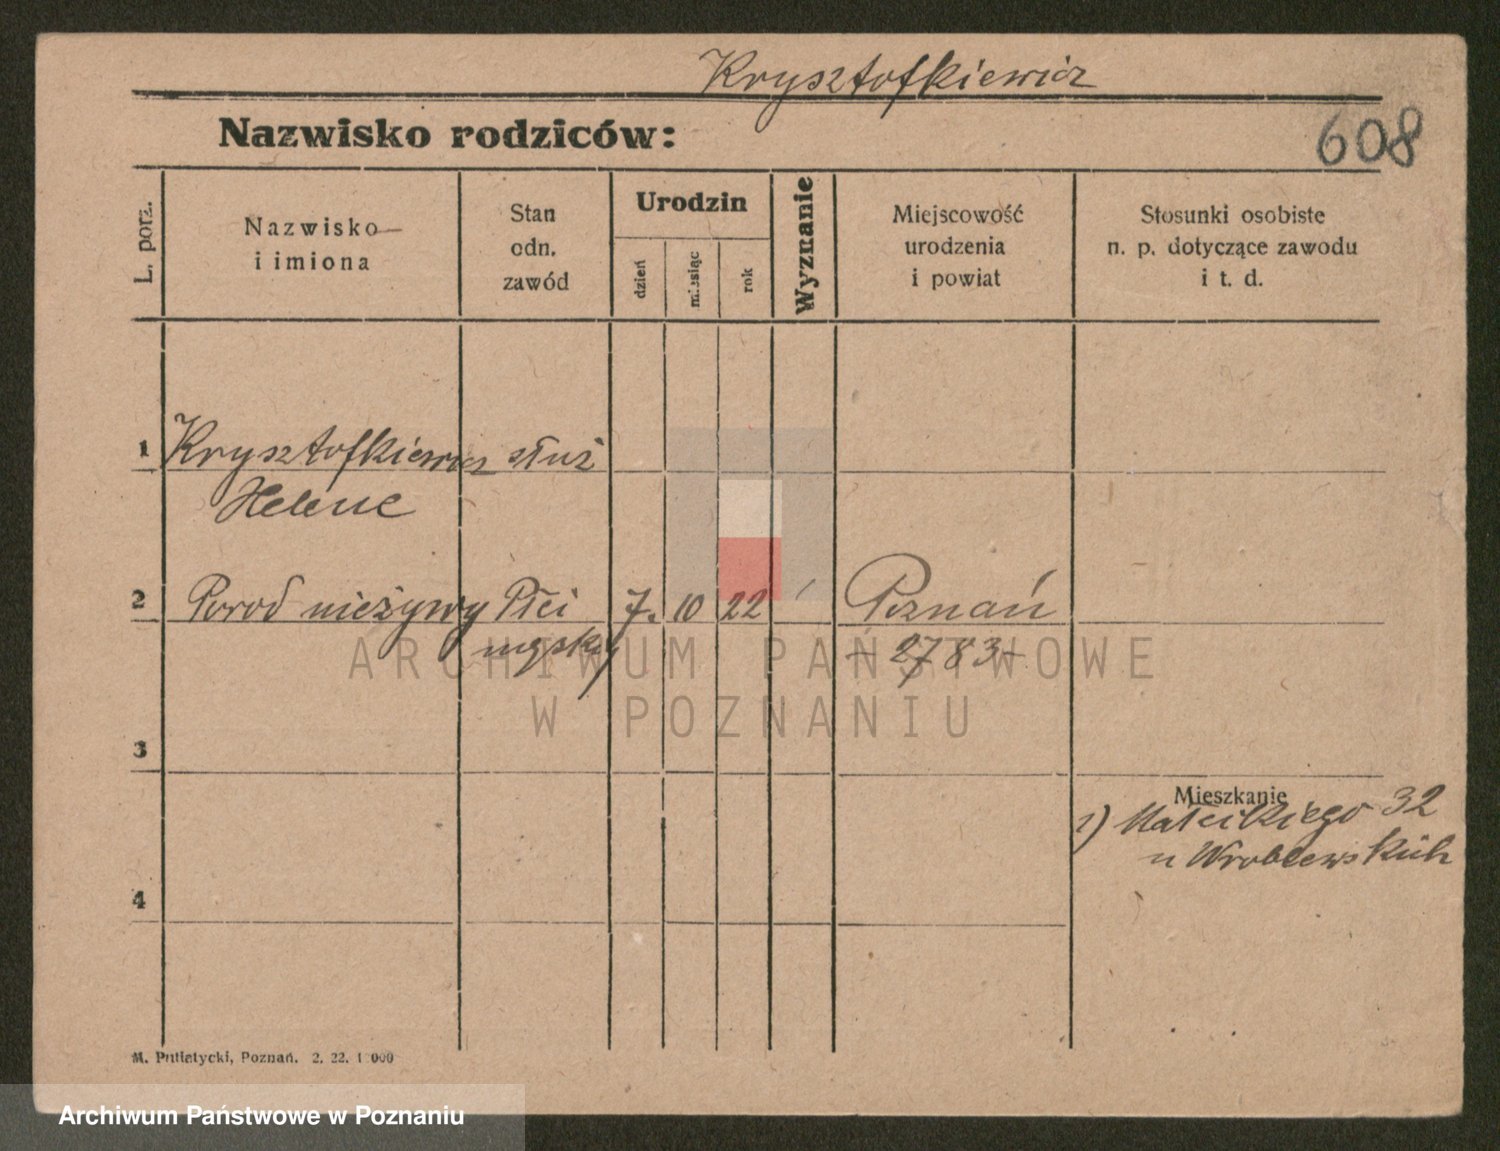 Krysztofkiewicz
Nazwisko rodziców:
608
L. porz.
Nazwisko
i imiona
Stan
odn.
zawód
Urodzin
dzień
miesiąc
rok
Wyznanie
Miejscowość
urodzenia
i powiat
Stosunki osobiste
n. p. dotyczące zawodu
i t. d.
1 Krysztofkiewicz służ
Helene
2 Porod nieżywy Płci 7. 10 22 Poznań
męskiy - 2783 -
ARCHIWUM PAŃSTWOWE
W POZNANIU
3
Mieszkanie
1) Małeckiego 32
u Wroblewskich
4
M. Putiatycki, Poznań. 2. 22. 1 000
Archiwum Państwowe w Poznaniu